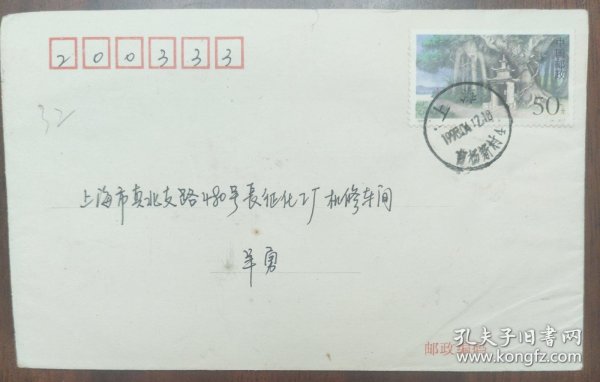 200333
中国邮政
50分
上海
1998.04.12.18
32
上海市真北支路480号长征化工厂机修车间
羊勇
邮政编码
孔夫子旧书网
www.kongfz.com